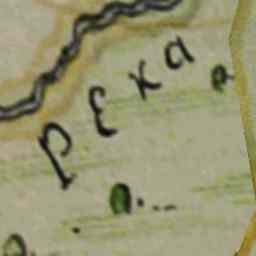 река